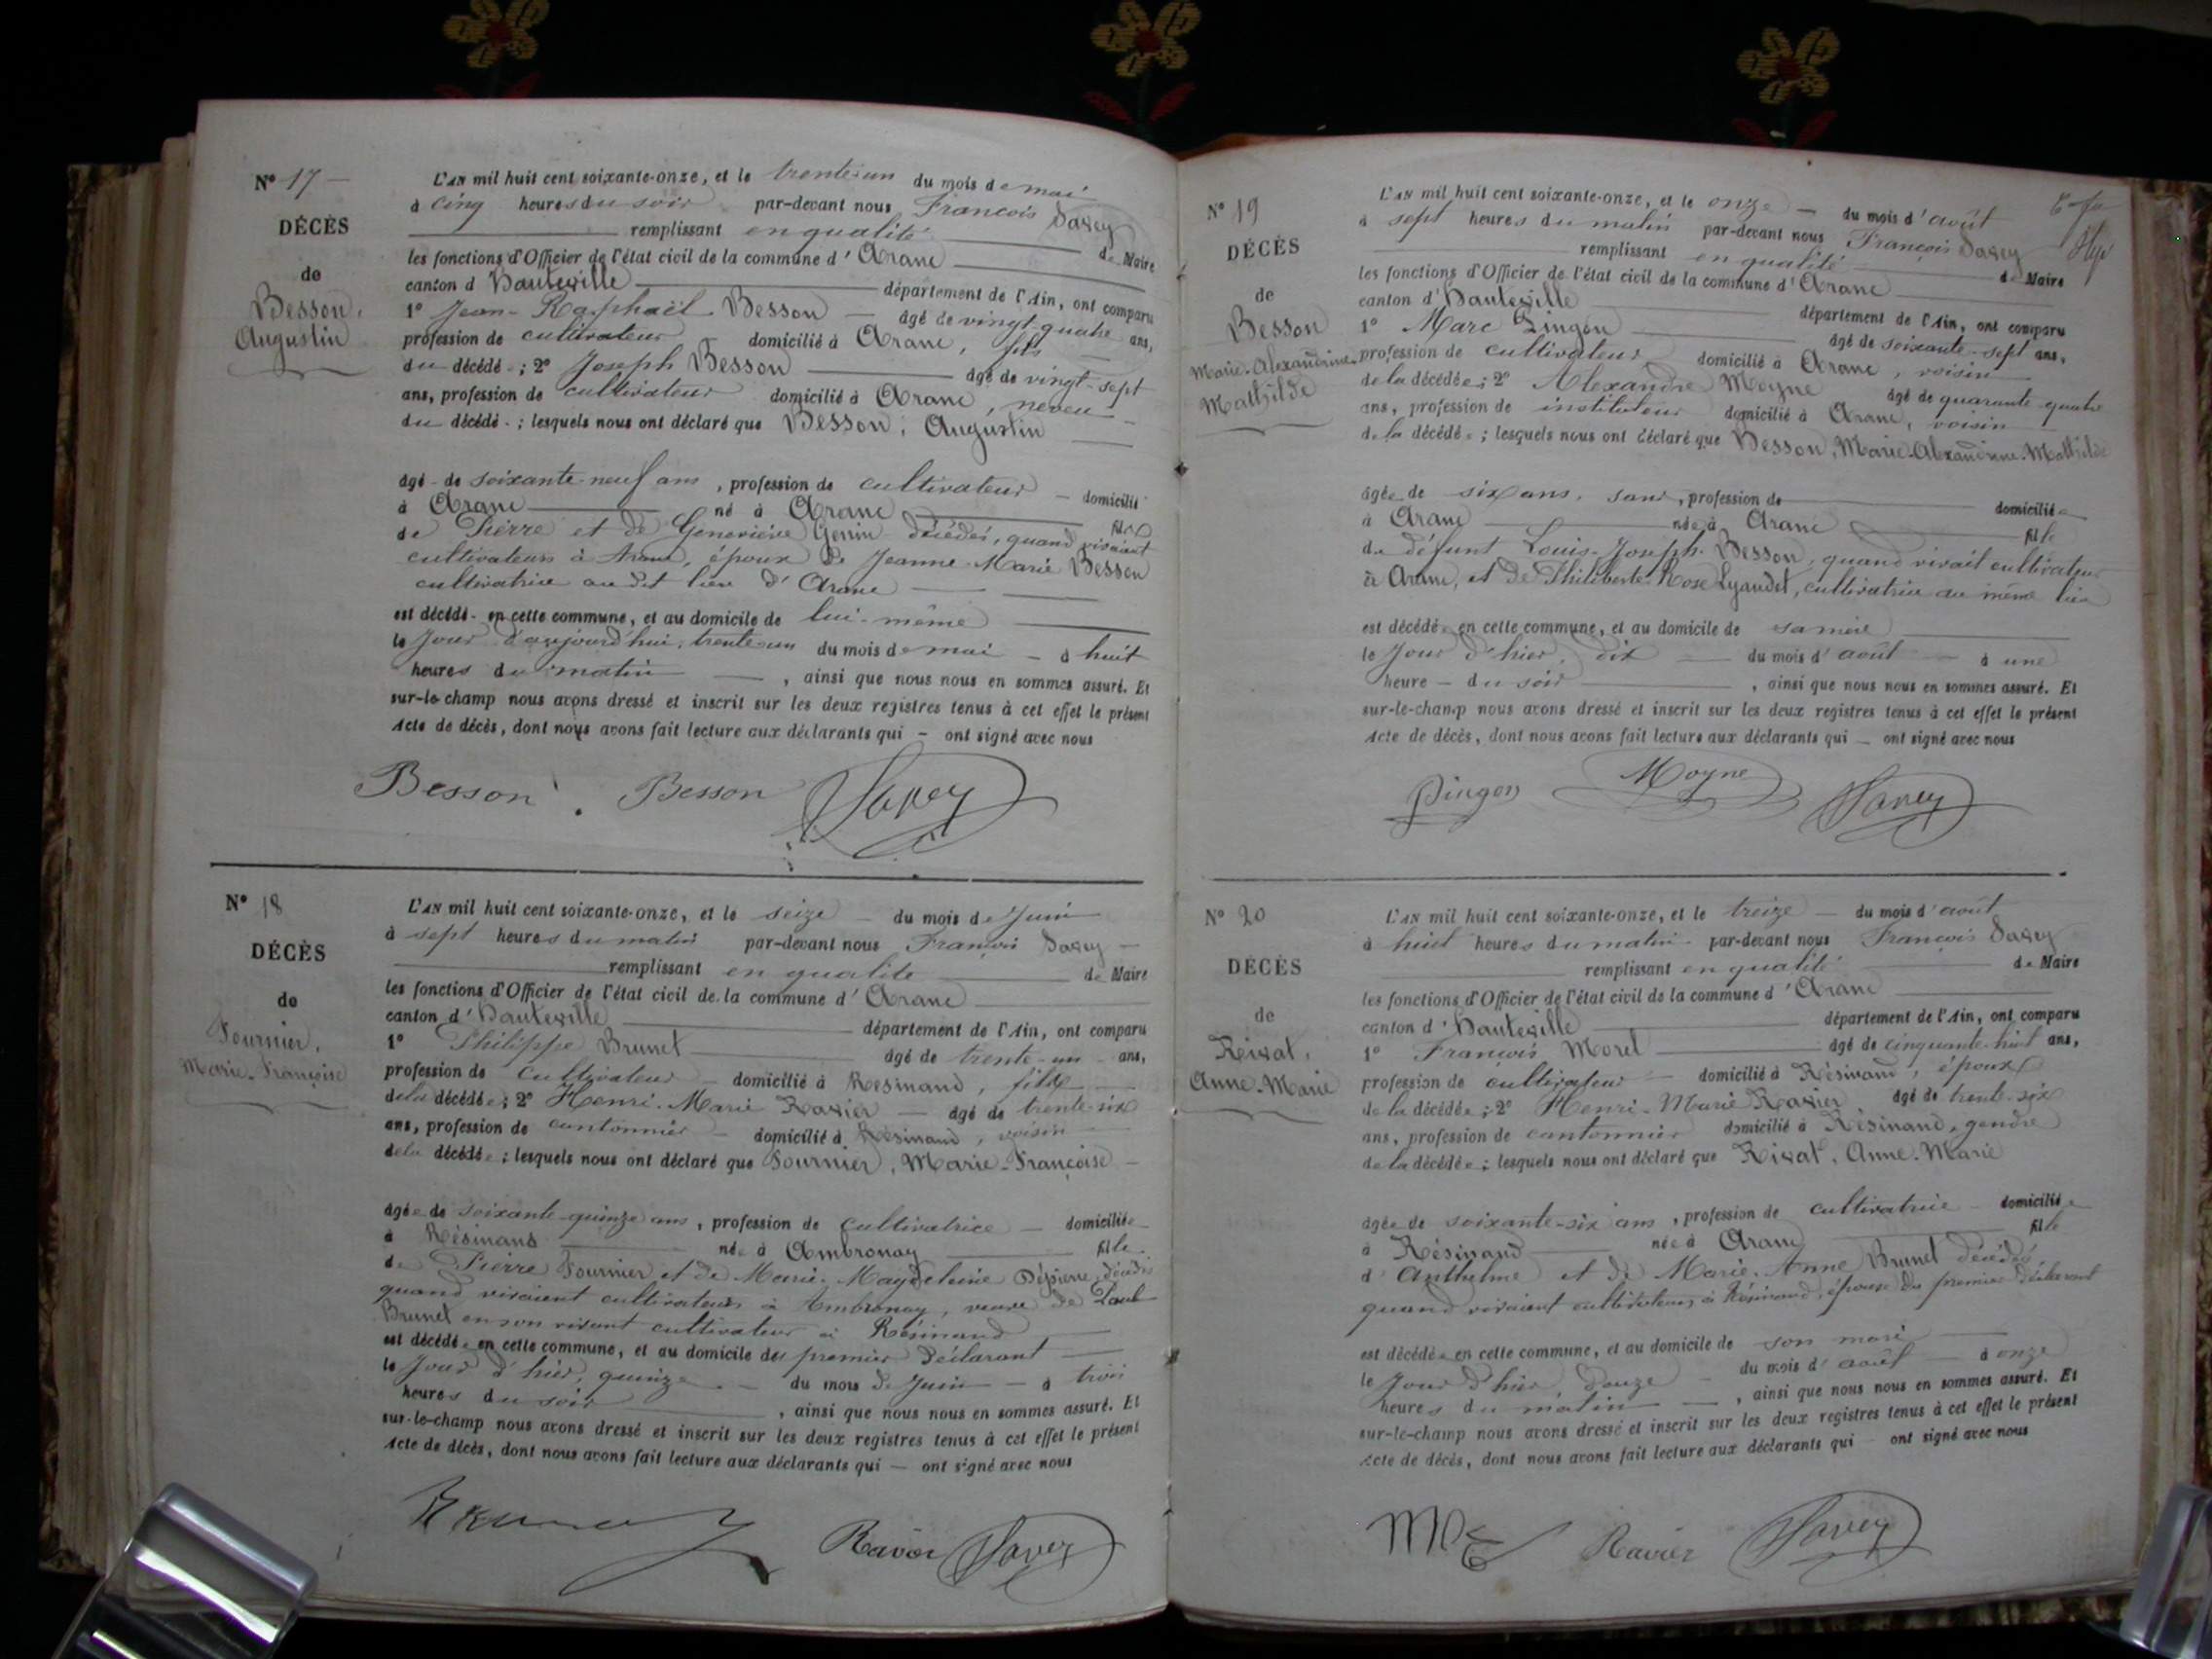 N° 17
DÉCÈS
de
Besson,
Augustin
L'AN mil huit cent soixante-onze, et le trente-un du mois de mai
à cinq heures du soir par-devant nous François Savey
remplissant en qualité de Maire
les fonctions d'Officier de l'état civil de la commune d'Aranc
canton d'Hauteville département de l'Ain, ont comparu
1° Jean-Raphaël Besson âgé de vingt-quatre ans,
profession de cultivateur domicilié à Aranc, fils
du décédé ; 2° Joseph Besson âgé de vingt-sept
ans, profession de cultivateur domicilié à Aranc, neveu
du décédé ; lesquels nous ont déclaré que Besson, Augustin
âgé de soixante-neuf ans, profession de cultivateur domicilié
à Aranc né à Aranc fils
de Pierre et de Geneviève Genin décédés, quand vivaient
cultivateurs à Aranc, époux de Jeanne-Marie Besson
cultivatrice au dit lieu d'Aranc
est décédé en cette commune, et au domicile de lui-même
le jour d'aujourd'hui, trente-un du mois de mai à huit
heures du matin, ainsi que nous nous en sommes assuré. Et
sur-le-champ nous avons dressé et inscrit sur les deux registres tenus à cet effet le présent
Acte de décès, dont nous avons fait lecture aux déclarants qui – ont signé avec nous
Besson Besson Savey
N° 18
DÉCÈS
de
Fournier,
Marie-Françoise
L'AN mil huit cent soixante-onze, et le seize du mois de Juin
à sept heures du matin par-devant nous François Savey
remplissant en qualité de Maire
les fonctions d'Officier de l'état civil de la commune d'Aranc
canton d'Hauteville département de l'Ain, ont comparu
1° Philippe Brunet âgé de trente-un ans,
profession de cultivateur domicilié à Résinand, fils
de la décédée ; 2° Henri-Marie Ravier âgé de trente-six
ans, profession de cantonnier domicilié à Résinand, voisin
de la décédée ; lesquels nous ont déclaré que Fournier, Marie-Françoise
âgée de soixante-quinze ans, profession de cultivatrice domiciliée
à Résinand née à Ambronay fille
de Pierre Fournier et de Marie-Magdeleine Dépierre, décédés
quand vivaient cultivateurs à Ambronay, veuve de Paul
Brunet en son vivant cultivateur à Résinand
est décédée en cette commune, et au domicile du premier déclarant
le jour d'hier, quinze du mois de Juin à trois
heures du soir, ainsi que nous nous en sommes assuré. Et
sur-le-champ nous avons dressé et inscrit sur les deux registres tenus à cet effet le présent
Acte de décès, dont nous avons fait lecture aux déclarants qui – ont signé avec nous
Ravier Savey
N° 19
DÉCÈS
de
Besson
Marie-Alexandrine-
Mathilde
L'AN mil huit cent soixante-onze, et le onze du mois d'août
à sept heures du matin par-devant nous François Savey
remplissant en qualité de Maire
les fonctions d'Officier de l'état civil de la commune d'Aranc
canton d'Hauteville département de l'Ain, ont comparu
1° Marc Pingon âgé de soixante-sept ans,
profession de cultivateur domicilié à Aranc, voisin
de la décédée ; 2° Alexandre Moyne âgé de quarante-quatre
ans, profession de instituteur domicilié à Aranc, voisin
de la décédée ; lesquels nous ont déclaré que Besson, Marie-Alexandrine-Mathilde
âgée de six ans, sans, profession de domiciliée
à Aranc née à Aranc fille
de défunt Louis-Joseph Besson, quand vivait cultivateur
à Aranc, et de Philiberte-Rose Lyaudet, cultivatrice au même lieu
est décédée en cette commune, et au domicile de sa mère
le jour d'hier, dix du mois d'août à une
heure – du soir, ainsi que nous nous en sommes assuré. Et
sur-le-champ nous avons dressé et inscrit sur les deux registres tenus à cet effet le présent
Acte de décès, dont nous avons fait lecture aux déclarants qui – ont signé avec nous
Pingon Moyne Savey
N° 20
DÉCÈS
de
Rivat,
Anne-Marie
L'AN mil huit cent soixante-onze, et le treize du mois d'août
à huit heures du matin par-devant nous François Savey
remplissant en qualité de Maire
les fonctions d'Officier de l'état civil de la commune d'Aranc
canton d'Hauteville département de l'Ain, ont comparu
1° François Morel âgé de cinquante-huit ans,
profession de cultivateur domicilié à Résinand, époux
de la décédée ; 2° Henri-Marie Ravier âgé de trente-six
ans, profession de cantonnier domicilié à Résinand, gendre
de la décédée ; lesquels nous ont déclaré que Rivat, Anne-Marie
âgée de soixante-six ans, profession de cultivatrice domiciliée
à Résinand née à Aranc fille
d'Anthelme et de Marie-Anne Brunet décédés,
quand vivaient cultivateurs à Résinand, épouse du premier déclarant
est décédée en cette commune, et au domicile de son mari
le jour d'hier, douze du mois d'août à onze
heures du matin, ainsi que nous nous en sommes assuré. Et
sur-le-champ nous avons dressé et inscrit sur les deux registres tenus à cet effet le présent
Acte de décès, dont nous avons fait lecture aux déclarants qui – ont signé avec nous
Ravier Savey